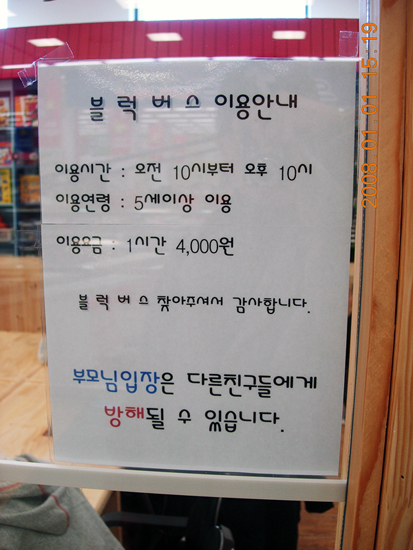 블럭버스 이용안내
이용시간 : 오전 10시부터 오후 10시
이용연령 : 5세이상 이용
이용요금 : 1시간 4,000원
블럭버스 찾아주셔서 감사합니다.
부모님입장은 다른친구들에게
방해될 수 있습니다.
2009 01 01 15:19